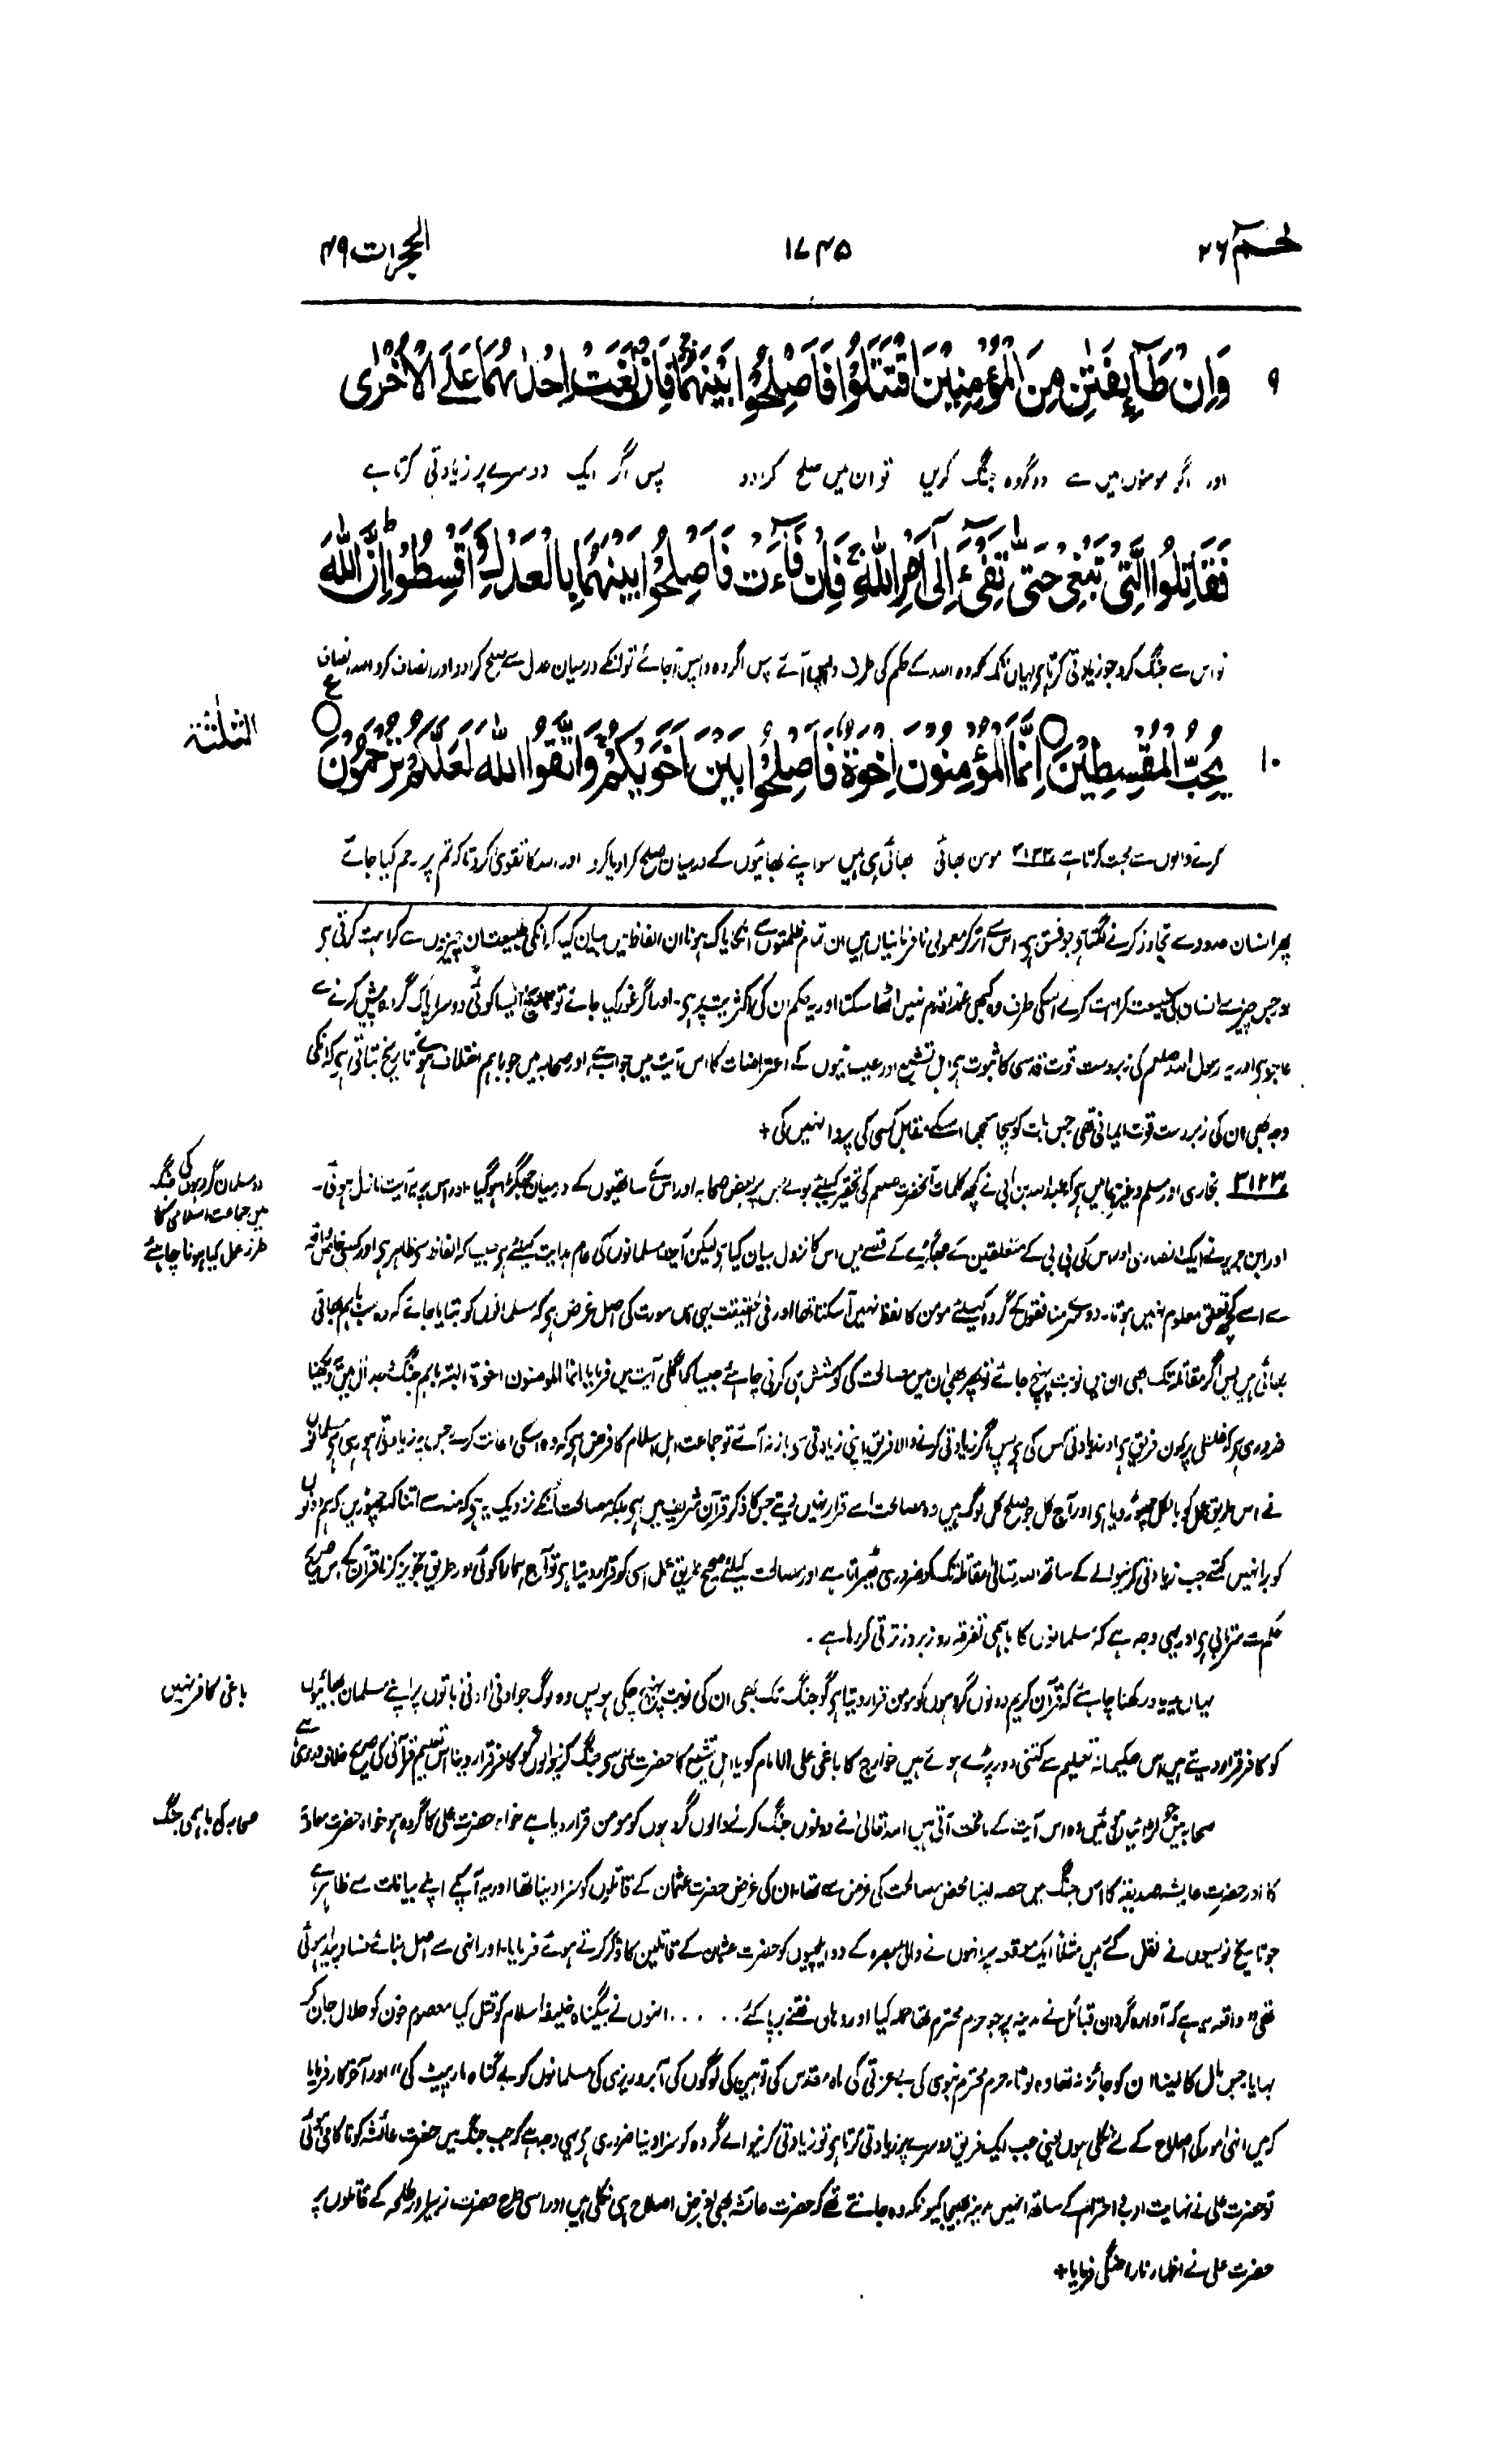 حٰمٓ ٢٦
١٧٤٥
الحجرات ٤٩
٩ وَاِنْ طَآئِفَتٰنِ مِنَ الْمُؤْمِنِيْنَ اقْتَتَلُوْا فَاَصْلِحُوْا بَيْنَهُمَا ۚ فَاِنْۢ بَغَتْ اِحْدٰىهُمَا عَلَى الْاُخْرٰى
اور اگر مومنوں میں سے دو گروہ جنگ کریں تو ان میں صلح کرا دو پس اگر ایک دوسرے پر زیادتی کرتا ہے
فَقَاتِلُوا الَّتِيْ تَبْغِيْ حَتّٰى تَفِيْٓءَ اِلٰٓى اَمْرِ اللّٰهِ ۚ فَاِنْ فَآءَتْ فَاَصْلِحُوْا بَيْنَهُمَا بِالْعَدْلِ وَ اَقْسِطُوْا ؕ اِنَّ اللّٰهَ
تو اس سے جنگ کرو جو زیادتی کرتا ہے یہاں تک کہ وہ اللہ کے حکم کی طرف واپس آئے پس اگر وہ واپس آجائے تو انکے درمیان عدل سے صلح کرا دو اور انصاف کرو اللہ انصاف
١٠ يُحِبُّ الْمُقْسِطِيْنَ ○ اِنَّمَا الْمُؤْمِنُوْنَ اِخْوَةٌ فَاَصْلِحُوْا بَيْنَ اَخَوَيْكُمْ وَاتَّقُوا اللّٰهَ لَعَلَّكُمْ تُرْحَمُوْنَ ○ ع
الثلٰثة
کرنے والوں سے محبت کرتا ہے ٣١٢٣ مومن بھائی بھائی ہی ہیں سو اپنے بھائیوں کے درمیان صلح کرا دیا کرو اور اللہ کا تقویٰ کرو تاکہ تم پر رحم کیا جائے
پھر انسان حدود سے تجاوز کرنے لگتا ہو جو فسق ہی اس سے اتر کر معمولی نافرمانیاں ہیں ان تمام ظلمتوں سے انکا پاک ہونا ان الفاظ میں بیان کیا کہ انکی طبیعت ان چیزوں سے کراہت کرتی ہی
اور جس چیز سے انسان کی طبیعت کراہت کرے اسکی طرف وہ کبھی عمداً قدم نہیں اٹھا سکتا اور یہ حکم ان کی اکثریت پر ہی۔ اور اگر غور کیا جائے تو تاریخ ایسا کوئی دوسرا پاک گروہ پیش کرنے سے
عاجز ہی اور یہ رسول اللہ صلعم کی زبردست قوت قدسی کا ثبوت ہی اہل تشیع اور عیسائیوں کے اعتراضات کا اس آیت میں جواب ہے اور صحابہ میں جو باہم اختلاف ہوئے تاریخ بتاتی ہی کہ انکی
وجہ بھی ان کی زبردست قوت ایمانی تھی جس بات کو سچا سمجھا اسکے مقابل کسی کی پروا نہیں کی +
٣١٢٣ بخاری اور مسلم وغیرہما میں ہی کہ عبد اللہ بن ابی نے کچھ کلمات آنحضرت صلعم کی تحقیر کیلئے بولے جس پر بعض صحابہ اور اس کے ساتھیوں کے درمیان جھگڑا ہو گیا۔ اور اس پر یہ آیت نازل ہوئی۔
دو مسلمان گروہوں کی جنگ
میں جماعت اسلامی کا
طرز عمل کیا ہونا چاہئے
اور ابن جریر نے ایک انصاری اور اس کی بی بی کے متعلقین کے جھگڑے کے قصے میں اس کا نزول بیان کیا ہو لیکن آیت مسلمانوں کی عام ہدایت کیلئے ہی جیسا کہ الفاظ سے ظاہر ہی اور کسی خاص واقعہ
سے اسے کچھ تعلق معلوم نہیں ہوتا۔ دوسرے منافقوں کے گروہ کیلئے مومن کا لفظ نہیں آسکتا تھا اور فی الحقیقت یہی اس سورت کی اصل غرض ہی کہ مسلمانوں کو بتایا جائے کہ وہ سب باہم بھائی
بھائی ہیں پس اگر مقاتلہ تک بھی ان میں نوبت پہنچ جائے تو پھر بھی ان میں مصالحت کی کوشش ہی کرنی چاہئے جیسا کہ اگلی آیت میں فرمایا انما المومنون اخوۃ البتہ باہم جنگ و جدال میں یہ دیکھنا
ضروری ہو کہ غلطی پر کون فریق ہی اور زیادتی کس کی ہی پس اگر زیادتی کرنے والا فریق اپنی زیادتی سے باز نہ آئے تو جماعت اہل اسلام کا فرض ہی کہ وہ اسکی اعانت کرے جس پر زیادتی ہو رہی ہی مسلمانوں
نے اس طریق عمل کو بالکل چھوڑ دیا ہی اور آج کل جو صلح کل لوگ ہیں وہ مصالحت اسے قرار نہیں دیتے جس کا ذکر قرآن شریف میں ہی بلکہ مصالحت انکے نزدیک یہ ہی کہ منہ سے اتنا کہہ چھوڑیں کہ ہم دونوں
کو برا نہیں کہتے جب زیادتی کرنیوالے کے ساتھ اللہ تعالیٰ مقاتلہ تک کو ضروری ٹھیراتا ہے اور مصالحت کیلئے صحیح طریق عمل اسی کو قرار دیتا ہی تو آج ہمارا کوئی اور طریق تجویز کرنا قرآن کے اس صریح
حکم سے سرتابی ہی اور یہی وجہ ہے کہ مسلمانوں کا باہمی تفرقہ روز بروز ترقی کر رہا ہے۔
یہاں یہ یاد رکھنا چاہئے کہ قرآن کریم دونوں گروہوں کو مومن قرار دیتا ہی گو جنگ تک بھی ان کی نوبت پہنچ چکی ہو پس وہ لوگ جو ادنیٰ ادنیٰ باتوں پر اپنے مسلمان بھائیوں
باغی کافر نہیں
کو کافر قرار دیتے ہیں اس حکیمانہ تعلیم سے کتنی دور پڑے ہوئے ہیں خوارج کا باغی علی الامام کو یا اہل تشیع کا حضرت علی سے جنگ کرنیوالوں کو کافر قرار دینا اس تعلیم قرآنی کی صریح خلاف ورزی ہے
صحابہ میں جو لڑائیاں ہوئیں وہ اس آیت کے ماتحت آتی ہیں اللہ تعالیٰ نے دونوں جنگ کرنے والوں گروہوں کو مومن قرار دیا ہے خواہ حضرت علی کا گروہ ہو خواہ حضرت معاویہ
صحابہ کی باہمی جنگ
کا اور حضرت عایشہ صدیقہ کا اس جنگ میں حصہ لینا محض مصالحت کی غرض سے تھا۔ ان کی غرض حضرت عثمان کے قاتلوں کو سزا دینا تھا اور یہ آپکے اپنے بیانات سے ظاہر ہے
جو تاریخ نویسوں نے نقل کئے ہیں مثلاً ایک موقعہ پر انہوں نے والی بصرہ کے دو ایلچیوں کو حضرت عثمان کے قاتلین کا ذکر کرتے ہوئے فرمایا۔ اور انہی سے اصل بنائے فساد پیدا ہوئی
تھی "واقعہ یہ ہے کہ آوارہ گردان قبائل نے مدینہ پر جو حرم محترم تھا حملہ کیا اور وہاں فتنے برپا کئے . . . . . انہوں نے بیگناہ خلیفہ اسلام کو قتل کیا معصوم خون کو حلال جان کر
بہایا جس مال کا لینا ان کو جائز نہ تھا وہ لوٹا۔ حرم محترم نبوی کی بے عزتی کی ماہ مقدس کی توہین کی لوگوں کی آبروریزی کی مسلمانوں کو بے گناہ مار پیٹ کی" اور آخر کار فرمایا
کہ میں انہی امور کی اصلاح کے لئے نکلی ہوں یعنی جب ایک فریق دوسرے پر زیادتی کرتا ہو تو زیادتی کرنیوالے گروہ کو سزا دینا ضروری ہی یہی وجہ ہے کہ جب جنگ میں حضرت عائشہ کو ناکامی ہوئی
تو حضرت علی نے نہایت ادب و احترام کے ساتھ انہیں مدینہ بھیجا کیونکہ وہ جانتے تھے کہ حضرت عائشہ بھی بغرض اصلاح ہی نکلی ہیں اور اسی طرح حضرت زبیر اور طلحہ کے قاتلوں پر
حضرت علی نے اظہار ناراضگی فرمایا +